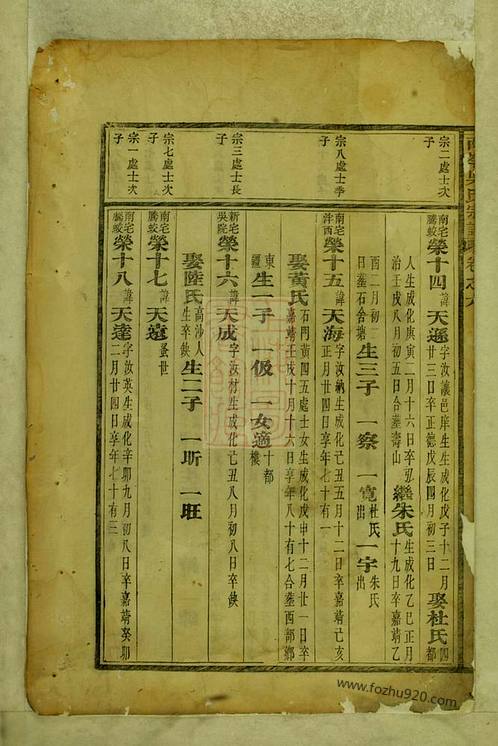 宗二處士次子
南宅騰蛟 榮十四 諱 天遜 字汝讓邑庠生生成化戊子十二月廿三日卒正德戊辰四月初三日 娶杜氏 四都
人生成化庚寅二月十六日卒
治壬戌八月初五日合墓壽山 繼朱氏 人生成化乙巳正月十九日卒嘉靖乙
酉二月初二日墓石舍塘 生三子 一察 一寬 杜氏出 一宇 朱氏出
宗八處士季子
南宅泮西 榮十五 諱 天海 字汝納生成化己丑五月十二日卒嘉靖己亥正月廿四日享年七十有一
娶黃氏 石門黃四五處士女生成化戊申十二月廿一日卒嘉靖壬戌十月十六日享年八十有七合墓西部鄉
東疆 生一子 一伋 一女適 十都樓
宗三處士長子
新宅吳院 榮十六 諱 天成 字汝材生成化己丑八月初八日卒佚
娶陸氏 高沙人生卒佚 生二子 一昕 一旺
宗七處士次子
南宅騰蛟 榮十七 諱 天遠 蚤世
宗一處士次子
南宅騰蛟 榮十八 諱 天達 字汝英生成化辛卯九月初八日卒嘉靖癸卯二月廿四日享年七十有三
www.fozhu920.com